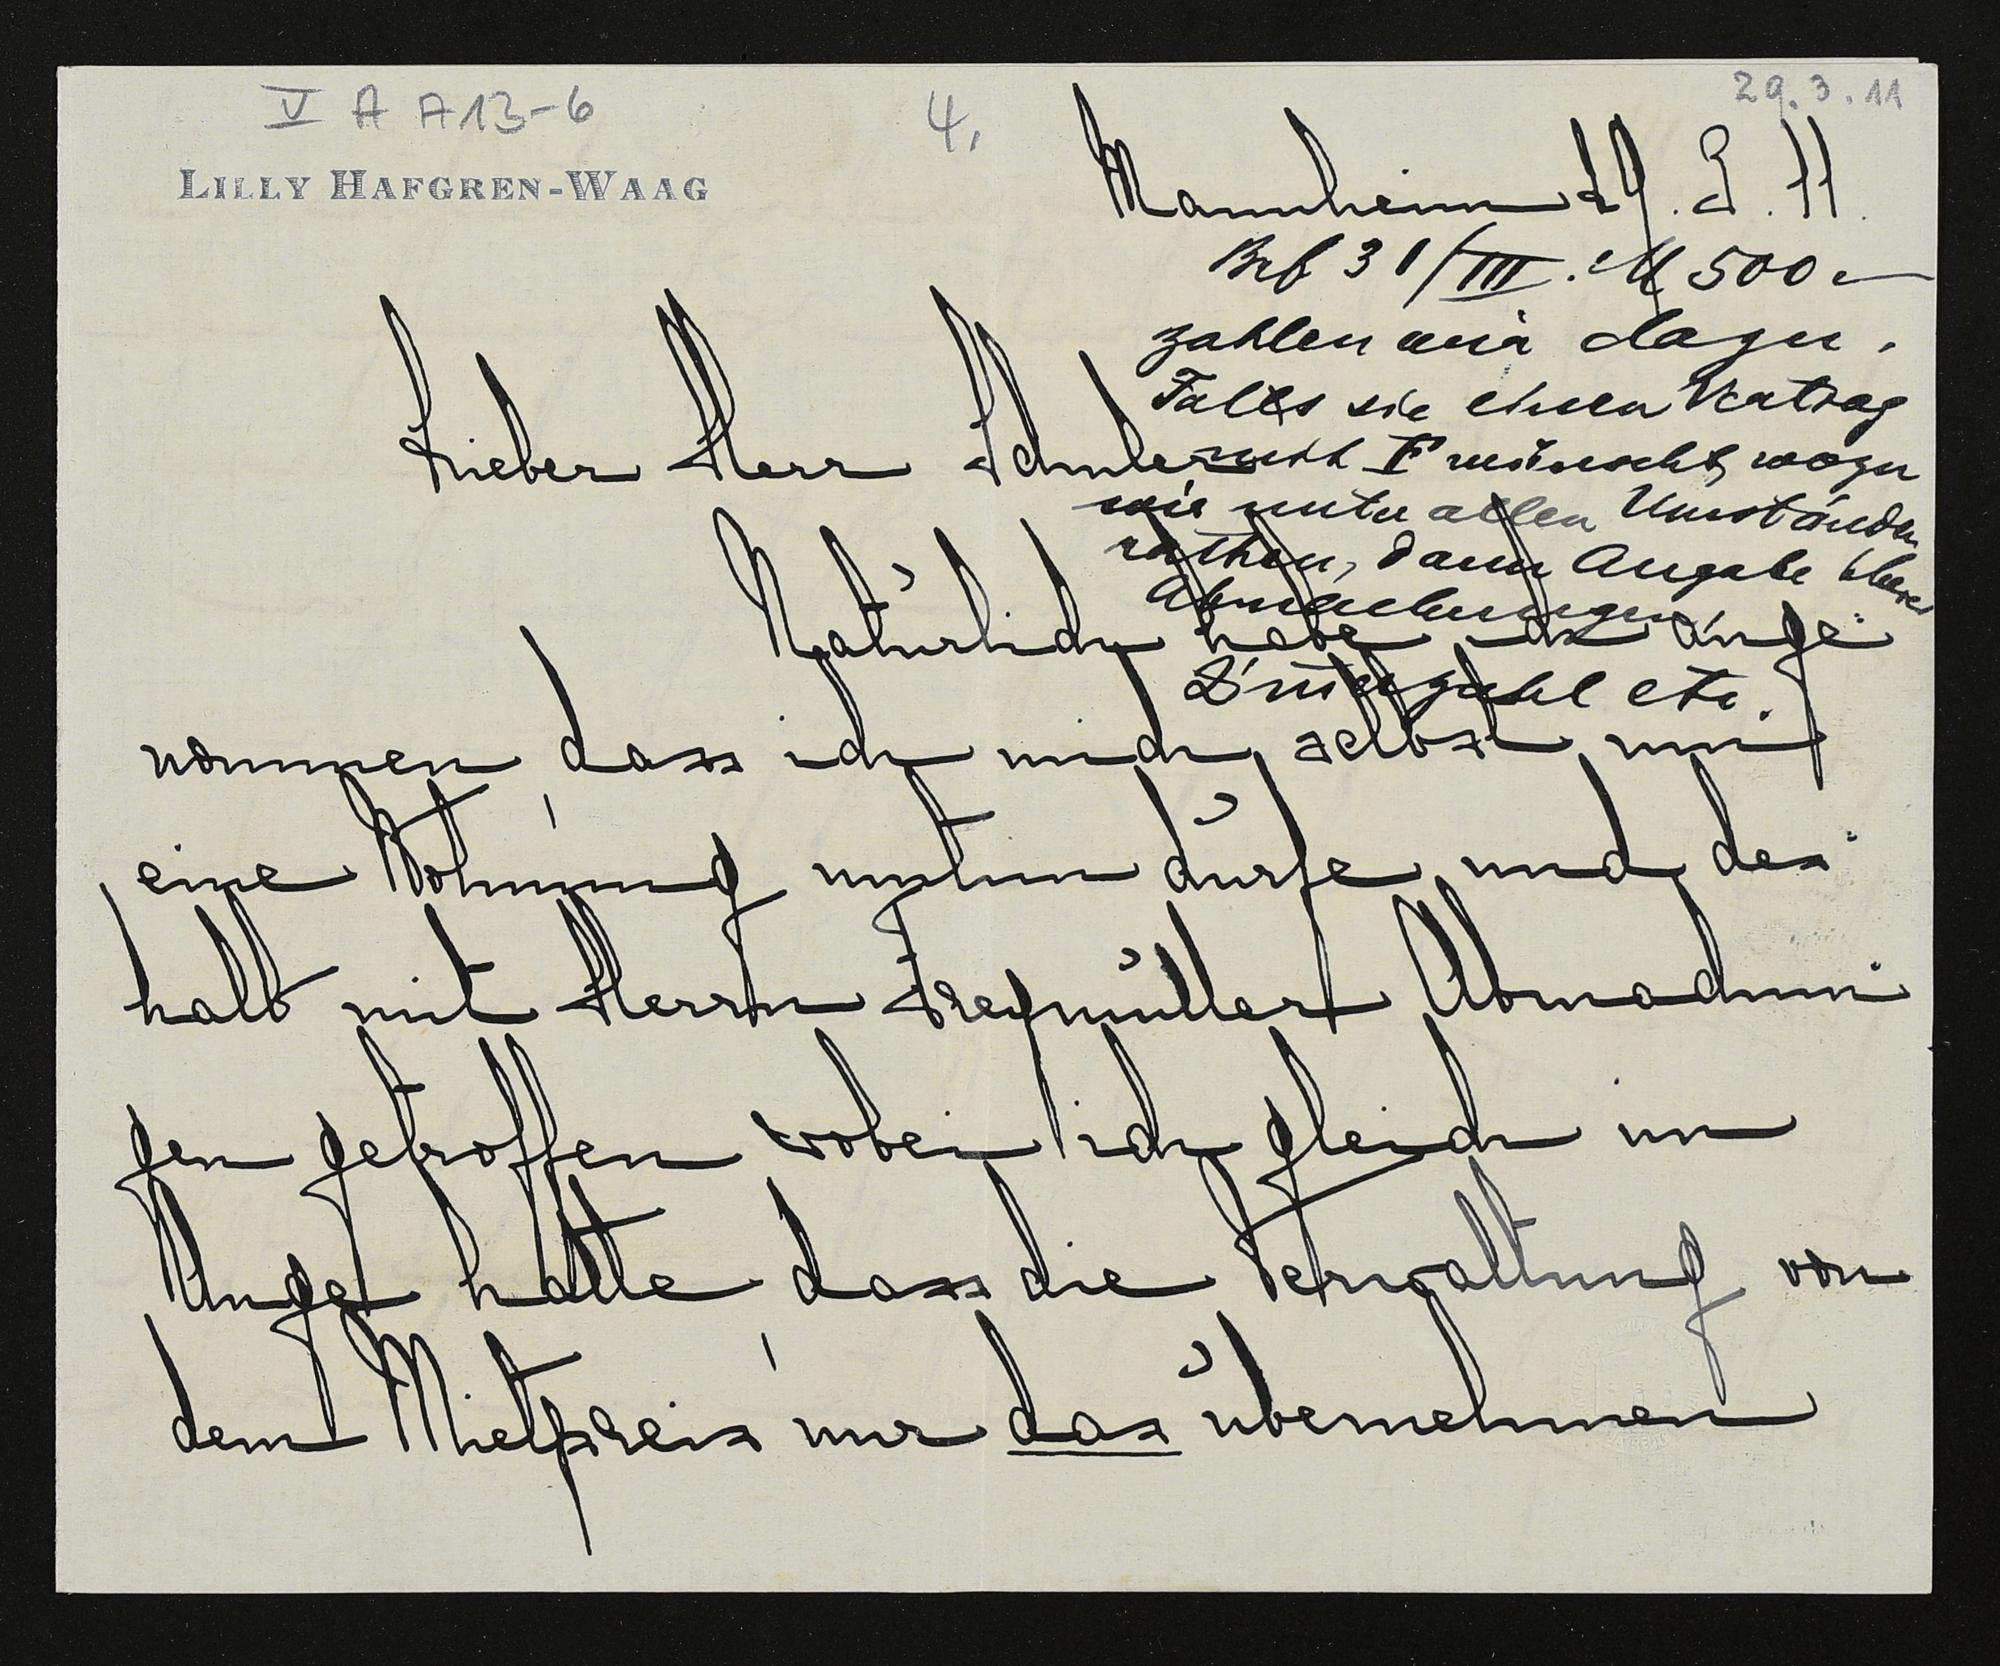 V A A13-6
4,
29.3.11
LILLY HAFGREN-WAAG
Mannheim 29. 3. 11.
Brf 31/III. M 500.—
zahlen wir dazu.
Falls sie einen Vertrag
mit F wünscht, wozu
wir unter allen Umständen
rathen, dann Angabe über
Abmachungen,
Zimmerzahl etc.
Lieber Herr Schuler
Natürlich habe ich ange
nommen, dass ich mich selbst um
eine Wohnung umtun dürfe und des
halb mit Herrn Freymüller Abmachun
gen getroffen wobei ich gleich im
Auge hatte dass die Verwaltung von
dem Mietpreis nur das übernehmen